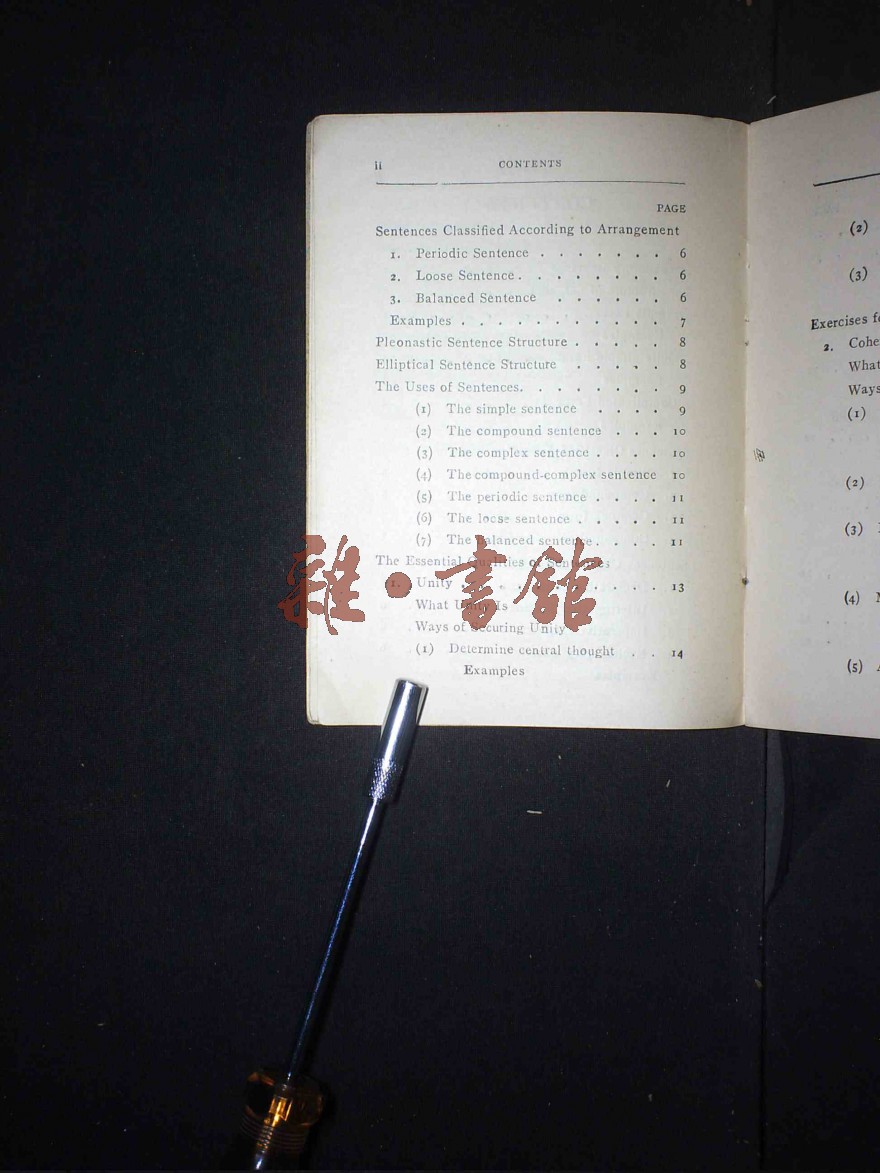 ii CONTENTS
PAGE
Sentences Classified According to Arrangement
1. Periodic Sentence . . . . . . . 6
2. Loose Sentence . . . . . . . . 6
3. Balanced Sentence . . . . . 6
Examples . . . . . . . . . . . 7
Pleonastic Sentence Structure . . . . . 8
Elliptical Sentence Structure . . . . . 8
The Uses of Sentences. . . . . . . . 9
(1) The simple sentence . . . . 9
(2) The compound sentence . . . 10
(3) The complex sentence . . . . 10
(4) The compound-complex sentence 10
(5) The periodic sentence . . . . 11
(6) The loose sentence . . . . . 11
(7) The balanced sentence . . . . 11
The Essential Qualities of Sentences
1. Unity . . . . . . . . . . . 13
What Unity Is
Ways of Securing Unity
(1) Determine central thought . . 14
Examples
雜·書館
(2)
(3)
Exercises
2.
What
Ways
(1)
(2)
(3)
(4)
(5)